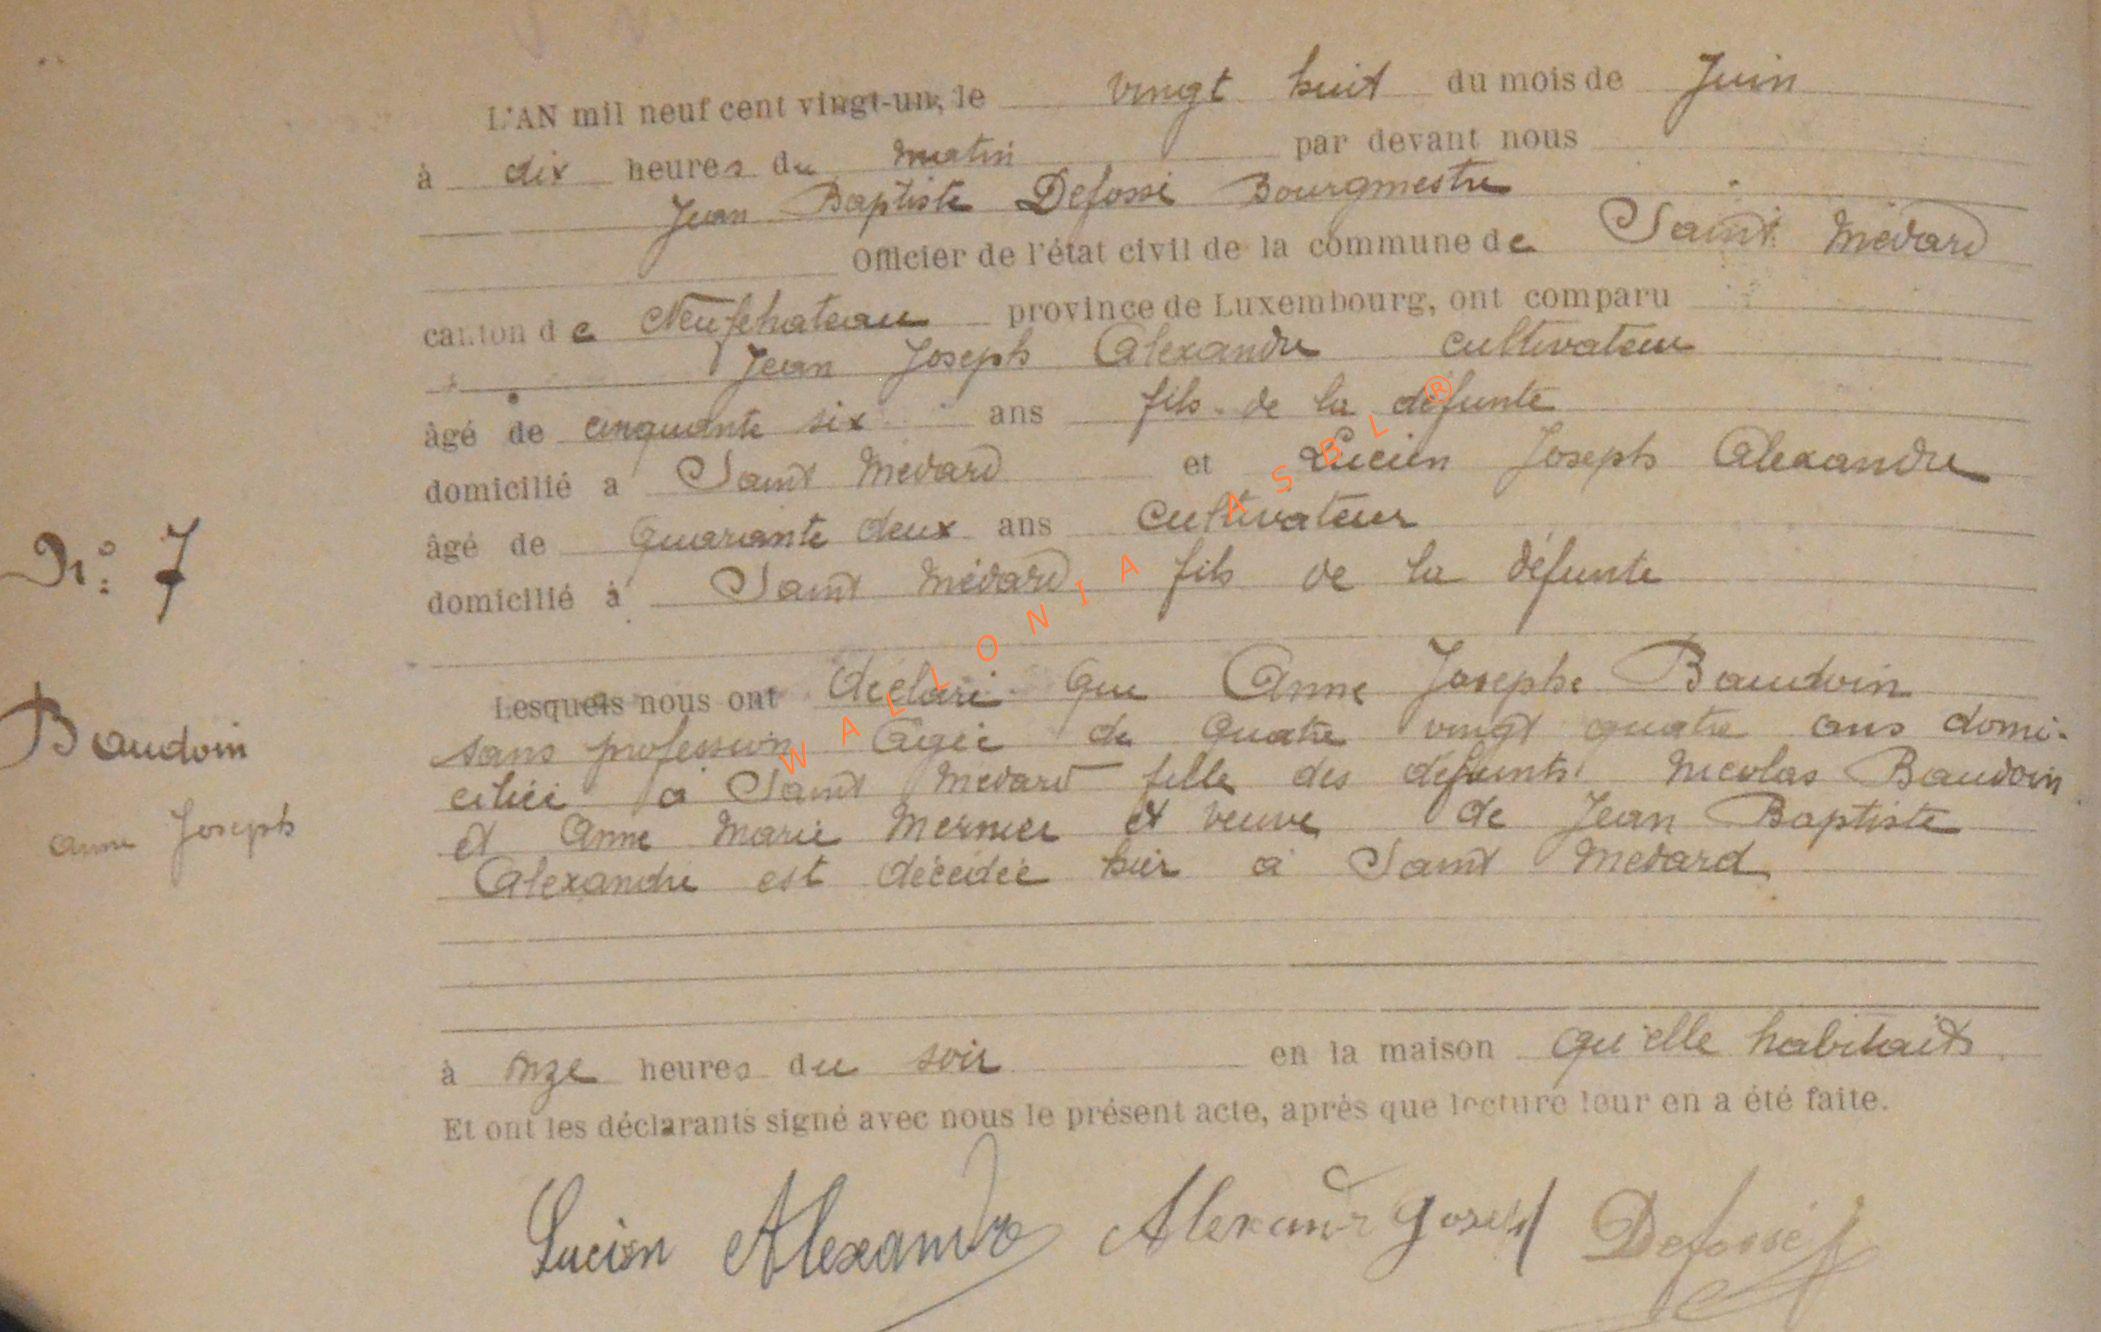 L'AN mil neuf cent vingt-un, le vingt huit du mois de Juin
à dix heures du matin par devant nous
Jean Baptiste Defossé Bourgmestre
Officier de l'état civil de la commune de Saint Médard
canton de Neufchateau province de Luxembourg, ont comparu
Jean Joseph Alexandre cultivateur
âgé de cinquante six ans fils de la défunte
domicilié a Saint Médard et Lucien Joseph Alexandre
âgé de quarante deux ans cultivateur
N° 7
domicilié à Saint Médard fils de la défunte
Lesquels nous ont déclaré que Anne Josephe Baudoin
Baudoin
Anne Joseph
sans profession agée de quatre vingt quatre ans domi-
ciliée à Saint Médard fille des défunts Nicolas Baudoin
et Anne Marie Mernier et veuve de Jean Baptiste
Alexandre est décédée hier à Saint Médard
à onze heures du soir en la maison qu'elle habitait
Et ont les déclarants signé avec nous le présent acte, après que lecture leur en a été faite.
Lucien Alexandre Alexandre Joseph Defossé
WALLONIA ASBL ®